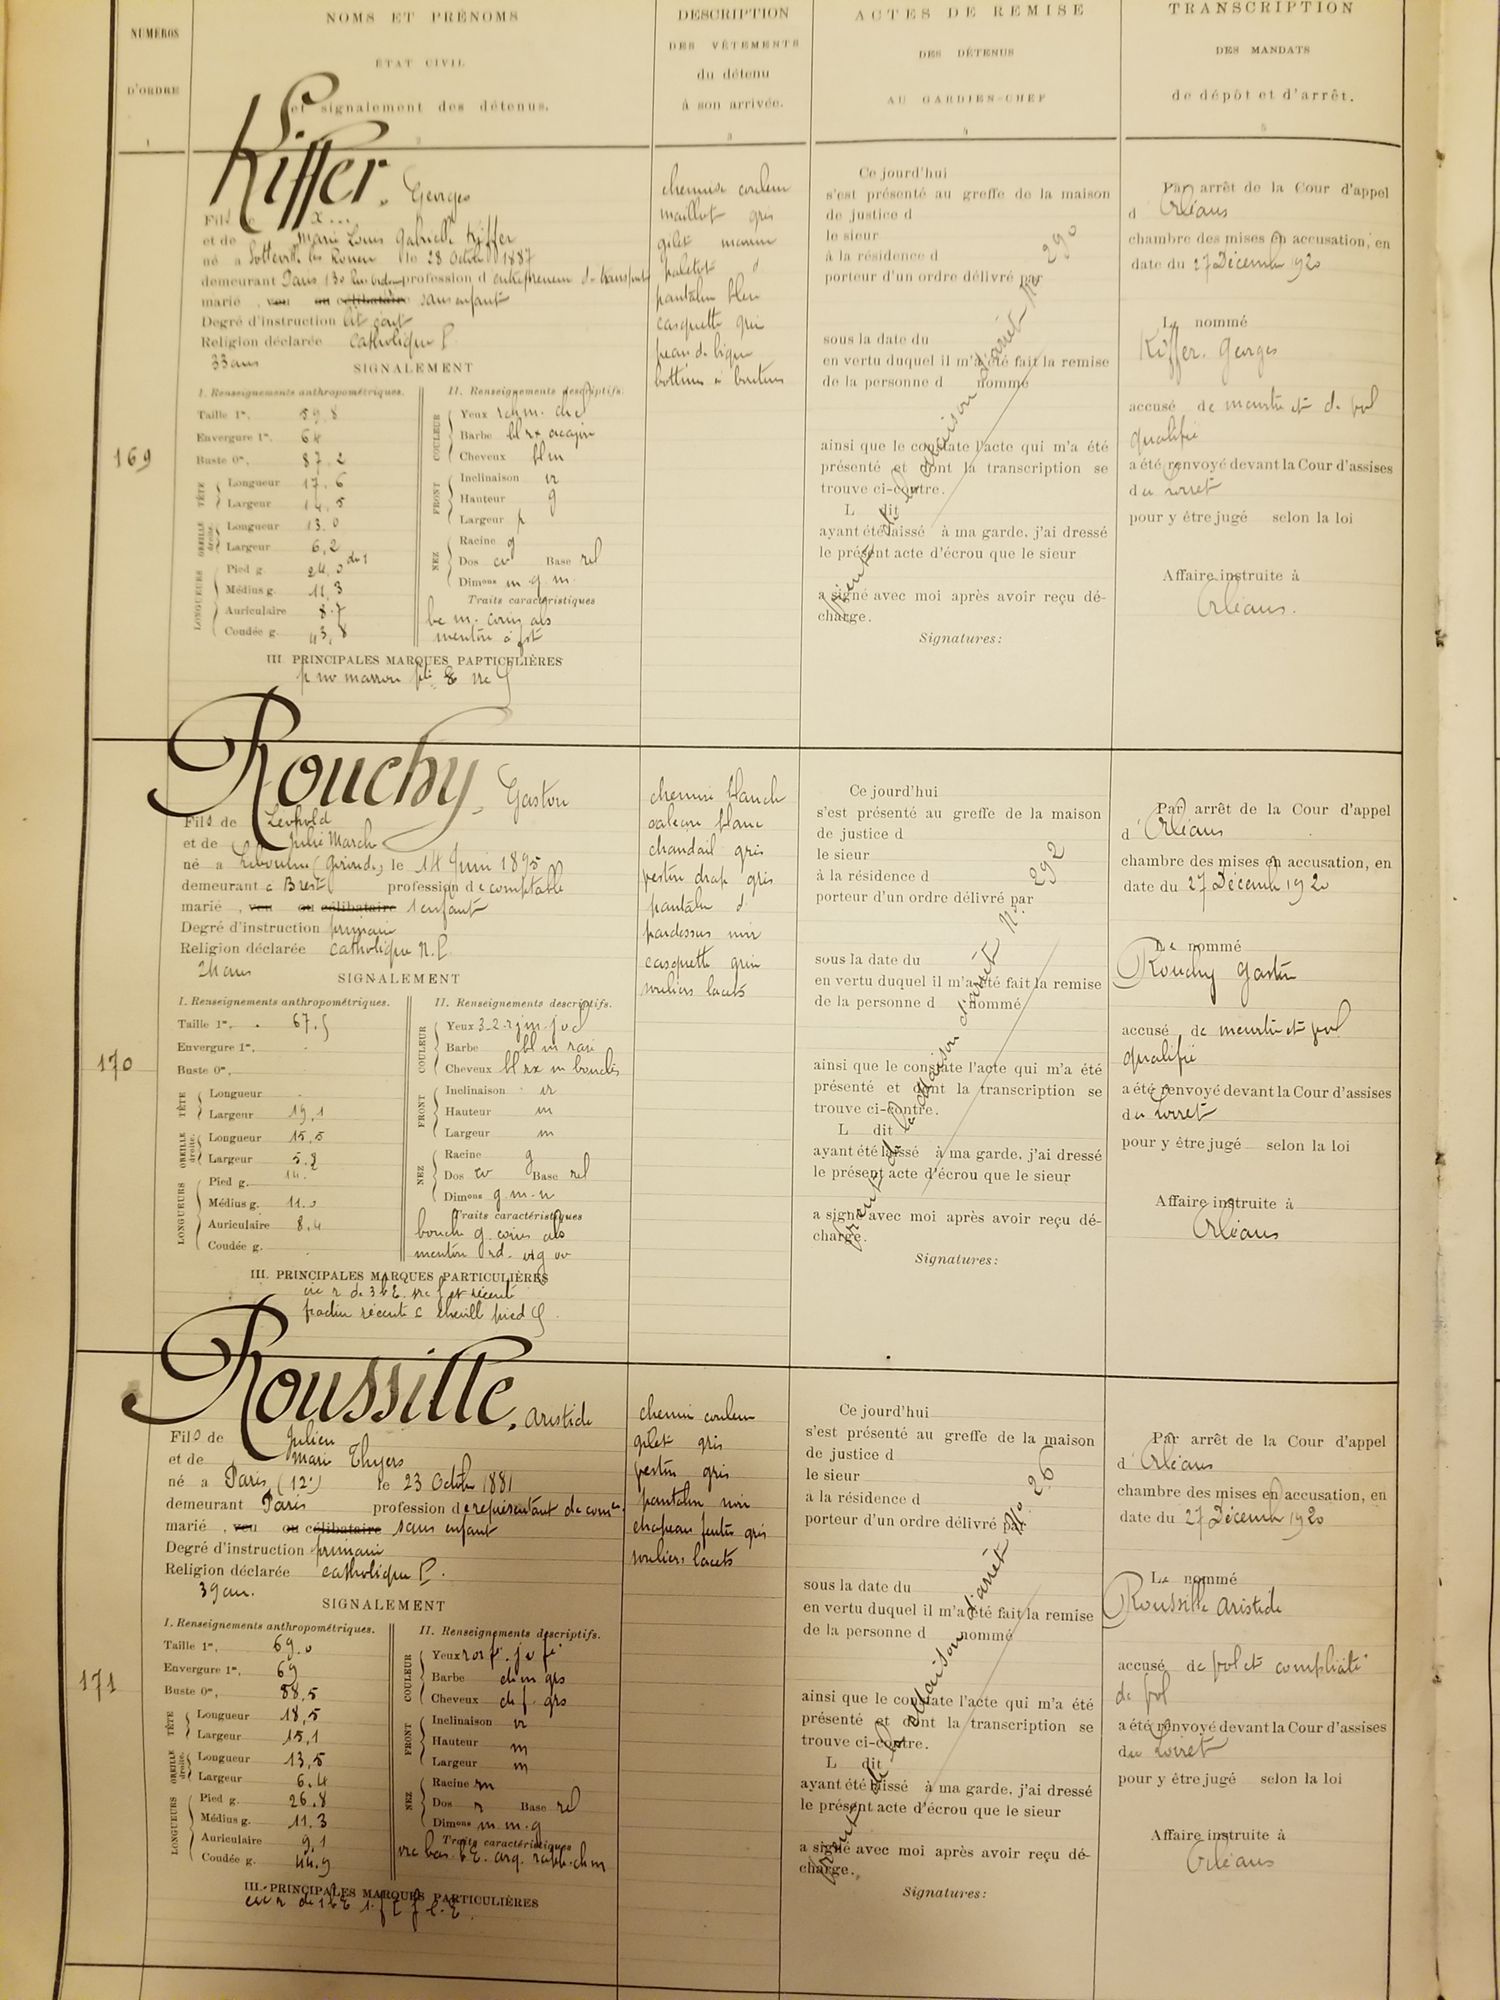 NUMÉROS
D'ORDRE
1
NOMS ET PRÉNOMS
ÉTAT CIVIL
et signalement des détenus.
2
DESCRIPTION
DES VÊTEMENTS
du détenu
à son arrivée.
3
ACTES DE REMISE
DES DÉTENUS
AU GARDIEN-CHEF
4
TRANSCRIPTION
DES MANDATS
de dépôt et d'arrêt.
5
169
Kiffer, Georges
Fils de x...
et de Marie Louis Gabrielle Kiffer
né à Sotteville les Rouen le 28 Octobre 1887
demeurant Paris 130 profession d'entrepreneur de transports
marié, veu ou célibataire sans enfant
Degré d'instruction lit écrit
Religion déclarée catholique P.
33 ans
SIGNALEMENT
I. Renseignements anthropométriques.
Taille 1m, 59.8
Envergure 1m, 64
Buste 0m, 87.2
TÊTE
Longueur 17.6
Largeur 14.5
OREILLE droite.
Longueur 13.0
Largeur 6,2
LONGUEURS
Pied g. 24.0
Médius g. 11,3
Auriculaire 8.7
Coudée g. 43,8
II. Renseignements descriptifs.
COULEUR
Yeux
Barbe bl rx acajou
Cheveux bl m
FRONT
Inclinaison vr
Hauteur g
Largeur p
NEZ
Racine g
Dos cv Base rel
Dimons m. g. m.
Traits caractéristiques
menton à
III. PRINCIPALES MARQUES PARTICULIÈRES
chemise couleur
maillot gris
gilet marron
paletot d°
pantalon bleu
casquette grise
peau de bique
bottines à boutons
Ce jourd'hui
s'est présenté au greffe de la maison
de justice d
le sieur
à la résidence d
porteur d'un ordre délivré par
sous la date du
en vertu duquel il m'a été fait la remise
de la personne d nommé
ainsi que le constate l'acte qui m'a été
présenté et dont la transcription se
trouve ci-contre.
L dit
ayant été laissé à ma garde, j'ai dressé
le présent acte d'écrou que le sieur
a signé avec moi après avoir reçu dé-
charge.
Signatures:
vient de la maison d'arrêt No 290
Par arrêt de la Cour d'appel
d'Orléans
chambre des mises en accusation, en
date du 27 Décembre 1920
Le nommé
Kiffer. Georges
accusé de meurtre et de vol
qualifié
a été renvoyé devant la Cour d'assises
du Loiret
pour y être jugé selon la loi
Affaire instruite à
Orléans.
170
Rouchy, Gaston
Fils de Léopold
et de Julie March
né à Libourne (Gironde) le 14 Juin 1895
demeurant à Brest profession de comptable
marié, veu ou célibataire 1 enfant
Degré d'instruction primaire
Religion déclarée catholique N. P.
24 ans
SIGNALEMENT
I. Renseignements anthropométriques.
Taille 1m, 67.5
Envergure 1m,
Buste 0m,
TÊTE
Longueur
Largeur 19,1
OREILLE droite.
Longueur 15,5
Largeur 5.8
LONGUEURS
Pied g.
Médius g. 11.0
Auriculaire 8,4
Coudée g.
II. Renseignements descriptifs.
COULEUR
Yeux
Barbe bl m rasé
Cheveux bl rx m bouclés
FRONT
Inclinaison vr
Hauteur m
Largeur m
NEZ
Racine g
Dos cv Base rel
Dimons g. m. m
Traits caractéristiques
bouche g. coins abs
menton
III. PRINCIPALES MARQUES PARTICULIÈRES
fracture récente cheville pied g.
chemise blanche
caleçon blanc
chandail gris
veston drap gris
pantalon d°
pardessus noir
casquette grise
souliers lacets
Ce jourd'hui
s'est présenté au greffe de la maison
de justice d
le sieur
à la résidence d
porteur d'un ordre délivré par
sous la date du
en vertu duquel il m'a été fait la remise
de la personne d nommé
ainsi que le constate l'acte qui m'a été
présenté et dont la transcription se
trouve ci-contre.
L dit
ayant été laissé à ma garde, j'ai dressé
le présent acte d'écrou que le sieur
a signé avec moi après avoir reçu dé-
charge.
Signatures:
vient de la maison d'arrêt No 292
Par arrêt de la Cour d'appel
d'Orléans
chambre des mises en accusation, en
date du 27 Décembre 1920
Le nommé
Rouchy Gaston
accusé de meurtre et vol
qualifié
a été renvoyé devant la Cour d'assises
du Loiret
pour y être jugé selon la loi
Affaire instruite à
Orléans
171
Roussille, Aristide
Fils de Julien
et de Marie Thyers
né à Paris (12e) le 23 Octobre 1881
demeurant Paris profession de représentant de comce.
marié, veu ou célibataire sans enfant
Degré d'instruction primaire
Religion déclarée catholique P.
39 ans.
SIGNALEMENT
I. Renseignements anthropométriques.
Taille 1m, 69.0
Envergure 1m, 69
Buste 0m, 88,5
TÊTE
Longueur 18,5
Largeur 15,1
OREILLE droite.
Longueur 13,5
Largeur 6.4
LONGUEURS
Pied g. 26.8
Médius g. 11.3
Auriculaire 9,1
Coudée g. 44.9
II. Renseignements descriptifs.
COULEUR
Yeux
Barbe ch m grs
Cheveux ch f. grs
FRONT
Inclinaison vr
Hauteur m
Largeur m
NEZ
Racine m
Dos r Base rel
Dimons m. m. g
Traits caractéristiques
III. PRINCIPALES MARQUES PARTICULIÈRES
chemise couleur
gilet gris
veston gris
pantalon noir
chapeau feutre gris
souliers lacets
Ce jourd'hui
s'est présenté au greffe de la maison
de justice d
le sieur
à la résidence d
porteur d'un ordre délivré par
sous la date du
en vertu duquel il m'a été fait la remise
de la personne d nommé
ainsi que le constate l'acte qui m'a été
présenté et dont la transcription se
trouve ci-contre.
L dit
ayant été laissé à ma garde, j'ai dressé
le présent acte d'écrou que le sieur
a signé avec moi après avoir reçu dé-
charge.
Signatures:
vient de la maison d'arrêt No 26
Par arrêt de la Cour d'appel
d'Orléans
chambre des mises en accusation, en
date du 27 Décembre 1920
Le nommé
Roussille Aristide
accusé de vol et complicité
de vol
a été renvoyé devant la Cour d'assises
du Loiret
pour y être jugé selon la loi
Affaire instruite à
Orléans